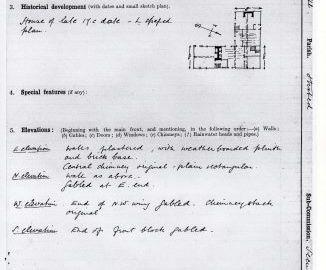 3. Historical development (with dates and small sketch plan).
House of late 17c date - L shaped
plan.
4. Special features (if any):
5. Elevations: (Beginning with the main front, and mentioning, in the following order:—(a) Walls;
(b) Gables; (c) Doors; (d) Windows; (e) Chimneys; (f) Rainwater heads and pipes.)
E elevation Walls plastered, with weatherboarded plinth
and brick base.
Central chimney original - plain rectangular
N. elevation Walls as above.
Gabled at E. end.
W. elevation End of N.W. wing gabled. Chimney stack
original
S. elevation End of front block gabled.
Parish.
Sub-Commission.